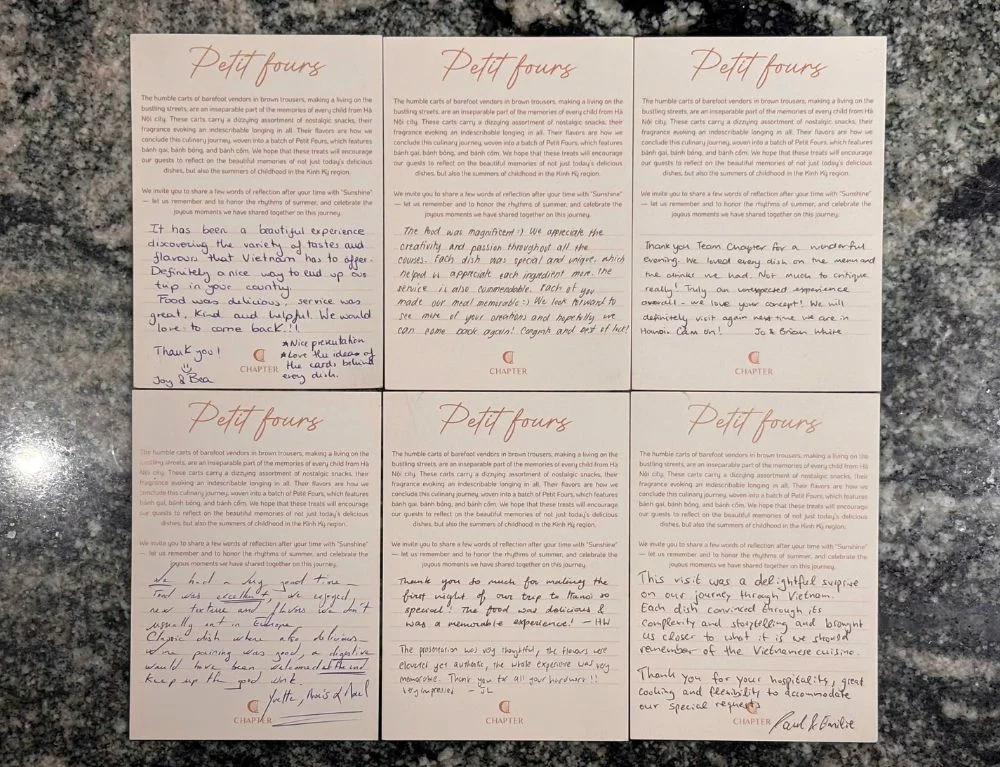 Petit fours
The humble carts of barefoot vendors in brown trousers, making a living on the
bustling streets, are an inseparable part of the memories of every child from Hà
Nội city. These carts carry a dizzying assortment of nostalgic snacks, their
fragrance evoking an indescribable longing in all. Their flavors are how we
conclude this culinary journey, woven into a batch of Petit Fours, which features
bánh gai, bánh bỏng, and bánh cốm. We hope that these treats will encourage
our guests to reflect on the beautiful memories of not just today's delicious
dishes, but also the summers of childhood in the Kinh Kỳ region.
We invite you to share a few words of reflection after your time with "Sunshine"
— let us remember and to honor the rhythms of summer, and celebrate the
joyous moments we have shared together on this journey.
It has been a beautiful experience
discovering the variety of tastes and
flavours that Vietnam has to offer.
Definitely a nice way to end up our
trip in your country.
Food was delicious, service was
great, kind and helpful. We would
love to come back!!!
Thank you!
Joy & Bea
* Nice presentation
* Love the ideas of
the cards behind
every dish.
CHAPTER
Petit fours
The humble carts of barefoot vendors in brown trousers, making a living on the
bustling streets, are an inseparable part of the memories of every child from Hà
Nội City. These carts carry a dizzying assortment of nostalgic snacks, their
fragrance evoking an indescribable longing in all. Their flavors are how we
conclude this culinary journey, woven into a batch of Petit Fours, which features
bánh gai, bánh bỏng, and bánh cốm. We hope that these treats will encourage
our guests to reflect on the beautiful memories of not just today's delicious
dishes, but also the summers of childhood in the Kinh Kỳ region.
We invite you to share a few words of reflection after your time with "Sunshine"
— let us remember and to honor the rhythms of summer, and celebrate the
joyous moments we have shared together on this journey.
The food was magnificent :) We appreciate the
creativity and passion throughout all the
courses. Each dish was special and unique, which
helped us appreciate each ingredient more. The
service is also commendable. Each of you
made our meal memorable :) We look forward to
see more of your creations and hopefully we
can come back again! Congrats and best of luck!
CHAPTER
Petit fours
The humble carts of barefoot vendors in brown trousers, making a living on the
bustling streets, are an inseparable part of the memories of every child from Hà
Nội City. These carts carry a dizzying assortment of nostalgic snacks, their
fragrance evoking an indescribable longing in all. Their flavors are how we
conclude this culinary journey, woven into a batch of Petit Fours, which features
bánh gai, bánh bỏng, and bánh cốm. We hope that these treats will encourage
our guests to reflect on the beautiful memories of not just today's delicious
dishes, but also the summers of childhood in the Kinh Kỳ region.
We invite you to share a few words of reflection after your time with "Sunshine"
— let us remember and to honor the rhythms of summer, and celebrate the
joyous moments we have shared together on this journey.
Thank you Team Chapter for a wonderful
evening. We loved every dish on the menu and
the drinks we had. Not much to critique
really! Truly an unexpected experience
overall - we love your concept! We will
definitely visit again next time we are in
Hanoi. Cảm ơn! Jo & Brian White
CHAPTER
Petit fours
The humble carts of barefoot vendors in brown trousers, making a living on the
bustling streets, are an inseparable part of the memories of every child from Hà
Nội city. These carts carry a dizzying assortment of nostalgic snacks, their
fragrance evoking an indescribable longing in all. Their flavors are how we
conclude this culinary journey, woven into a batch of Petit Fours, which features
bánh gai, bánh bỏng, and bánh cốm. We hope that these treats will encourage
our guests to reflect on the beautiful memories of not just today's delicious
dishes, but also the summers of childhood in the Kinh Kỳ region.
We invite you to share a few words of reflection after your time with "Sunshine"
— let us remember and to honor the rhythms of summer, and celebrate the
joyous moments we have shared together on this journey.
We had a very good time -
Food was excellent, we enjoyed
new texture and flavors we don't
usually eat in Europe.
Classic dish where also delicious -
Wine pairing was good, a digestive
would have been welcomed at the end
Keep up the good work.
Yvette, &
CHAPTER
Petit fours
The humble carts of barefoot vendors in brown trousers, making a living on the
bustling streets, are an inseparable part of the memories of every child from Hà
Nội City. These carts carry a dizzying assortment of nostalgic snacks, their
fragrance evoking an indescribable longing in all. Their flavors are how we
conclude this culinary journey, woven into a batch of Petit Fours, which features
bánh gai, bánh bỏng, and bánh cốm. We hope that these treats will encourage
our guests to reflect on the beautiful memories of not just today's delicious
dishes, but also the summers of childhood in the Kinh Kỳ region.
We invite you to share a few words of reflection after your time with "Sunshine"
— let us remember and to honor the rhythms of summer, and celebrate the
joyous moments we have shared together on this journey.
Thank you so much for making the
first night of our trip to Hanoi so
special! The food was delicious &
was a memorable experience! - HW
The presentation was very thoughtful, the flavours were
elevated yet authentic, the whole experience was very
memorable. Thank you for all your hardwork!!
Very impressed - JL
CHAPTER
Petit fours
The humble carts of barefoot vendors in brown trousers, making a living on the
bustling streets, are an inseparable part of the memories of every child from Hà
Nội City. These carts carry a dizzying assortment of nostalgic snacks, their
fragrance evoking an indescribable longing in all. Their flavors are how we
conclude this culinary journey, woven into a batch of Petit Fours, which features
bánh gai, bánh bỏng, and bánh cốm. We hope that these treats will encourage
our guests to reflect on the beautiful memories of not just today's delicious
dishes, but also the summers of childhood in the Kinh Kỳ region.
We invite you to share a few words of reflection after your time with "Sunshine"
— let us remember and to honor the rhythms of summer, and celebrate the
joyous moments we have shared together on this journey.
This visit was a delightful surprise
on our journey through Vietnam.
Each dish convinced through its
complexity and storytelling and brought
us closer to what it is we should
remember of the Vietnamese cuisine.
Thank you for your hospitality, great
cooking and flexibility to accommodate
our special requests
CHAPTER
Paul & Emilie